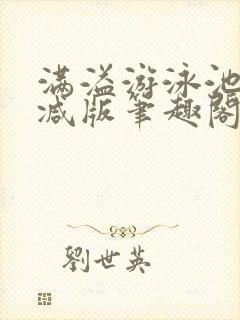 满溢游泳池
减版笔趣阁
劉世英